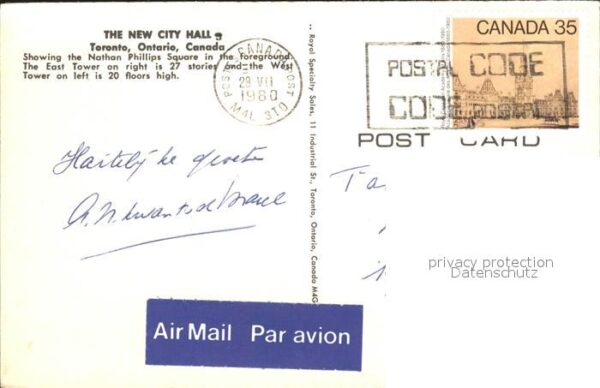 THE NEW CITY HALL
Toronto, Ontario, Canada
Showing the Nathan Phillips Square in the foreground.
The East Tower on right is 27 stories and the West
Tower on left is 20 floors high.
CANADA
POSTE POST
29 VII
1980
M4L 3T0
CANADA 35
POSTAL CODE
CODE POSTAL
POST CARD
Royal Specialty Sales, 11 Industrial St., Toronto, Ontario, Canada M4G
privacy protection
Datenschutz
Air Mail Par avion